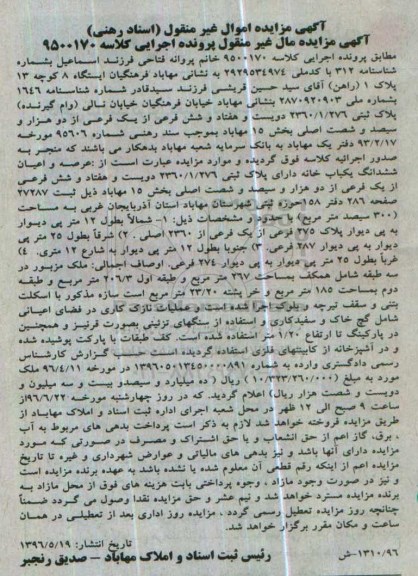 آگهی مزایده اموال غیر منقول (اسناد رهنی)
آگهی مزایده مال غیر منقول پرونده اجرایی کلاسه ۹۵۰۰۱۷۰
مطابق پرونده اجرایی کلاسه ۹۵۰۰۱۷۰ خانم پروانه فتاحی فرزند اسماعیل بشماره
شناسنامه ۳۱۲ با کدملی ۲۹۲۹۵۳۴۹۷۴ به نشانی مهاباد فرهنگیان ایستگاه ۸ کوچه ۱۳
پلاک ۱ (راهن) آقای سید حسن قریشی فرزند سیدقادر شماره شناسنامه ۱۶۴۶
بشماره ملی ۲۸۷۰۹۲۰۹۰۳ بنشانی مهاباد خیابان فرهنگیان خیابان نالی (وام گیرنده)
پلاک ثبتی ۲۳۶۰/۱/۲۷۶ دویست و هفتاد و شش فرعی از یک فرعی از دو هزار و
سیصد و شصت اصلی بخش ۱۵ مهاباد بموجب سند رهنی شماره ۹۵۶۰۶ مورخه
۹۳/۲/۱۷ دفتر یک مهاباد به بانک سرمایه شعبه مهاباد بدهکار می باشند که منجر به
صدور اجرائیه کلاسه فوق گردیده و موارد مزایده عبارت است از :عرصه و اعیان
ششدانگ یکباب خانه دارای پلاک ثبتی ۲۳۶۰/۱/۲۷۶ دویست و هفتاد و شش فرعی
از یک فرعی از دو هزار و سیصد و شصت اصلی بخش ۱۵ مهاباد ذیل ثبت ۲۷۲۸۷
صفحه ۲۸۶ دفتر ۱۵۸ حوزه ثبتی شهرستان مهاباد استان آذربایجان غربی به مساحت
(۳۰۰ سیصد متر مربع) با حدود و مشخصات ذیل: ۱- شمالاً بطول ۱۲ متر پی دیوار
به پی دیوار پلاک ۲۷۵ فرعی از یک فرعی از ۲۳۶۰ اصلی .۲) شرقاً بطول ۲۵ متر پی
دیوار به پی دیوار ۲۸۷ فرعی. ۳) جنوبا بطول ۱۲ متر پی دیوار به شارع ۱۲ متری. ۴)
غرباً بطول ۲۵ متر پی دیوار به پی دیوار ۲۷۴ فرعی. اوصاف اجمالی: ملک مزبور در
سه طبقه شامل همکف بمساحت ۲۶۷ متر مربع و طبقه اول ۲۰۶/۳ متر مربع و طبقه
دوم بمساحت ۱۸۵ متر مربع و خر پشته ۲۳/۲۰ متر مربع است سازه مذکور با اسکلت
بتنی و سقف تیرچه و بلوک اجرا شده است و عملیات نازک کاری در فضای اعیانی
شامل گچ خاک و سفیدکاری و استفاده از سنگهای تزئینی بصورت قرنیز و همچنین
در پارکینگ تا ارتفاع ۱/۲۰ متر استفاده شده است. کف طبقات با پارکت پوشیده شده
و در آشپزخانه از کابینتهای فلزی استفاده گردیده است حسب گزارش کارشناس
رسمی دادگستری وارده به شماره ۱۳۹۶۰۵۰۱۳۴۵۰۰۰۰۸۹۱ در مورخه ۹۶/۴/۱۱ ملک
مورد به مبلغ (۱۰/۳۲۳/۲۶۰/۰۰۰) ریال ( ده میلیارد و سیصدو بیست و سه میلیون و
دویست و شصت هزار ریال) اعلام گردید. که در روز چهارشنبه مورخه ۹۶/۶/۲۲از
ساعت ۹ صبح الی ۱۲ ظهر در محل شعبه اجرای اداره ثبت اسناد و املاک مهاباد از
طریق مزایده فروخته خواهد شد لازم به ذکر است پرداخت بدهی های مربوط به آب
، برق، گاز اعم از حق انشعاب و یا حق اشتراک و مصرف در صورتی که مورد
مزایده دارای آنها باشد و نیز بدهی های مالیاتی و عوارض شهرداری و غیره تا تاریخ
مزایده اعم از اینکه رقم قطعی آن معلوم شده یا نشده باشد به عهده برنده مزایده است
و نیز در صورت وجود مازاد ، وجوه پرداختی بابت هزینه های فوق از محل مازاد به
برنده مزایده مسترد خواهد شد و نیم عشر و حق مزایده نقدا وصول می گردد ضمناً
چنانچه روز مزایده تعطیل رسمی گردد ، مزایده روز اداری بعد از تعطیلی در همان
ساعت و مکان مقرر برگزار خواهد شد.
تاریخ انتشار: ۱۳۹۶/۵/۱۹
۱۳۱۰/۹۶-ش رئیس ثبت اسناد و املاک مهاباد – صدیق رنجبر